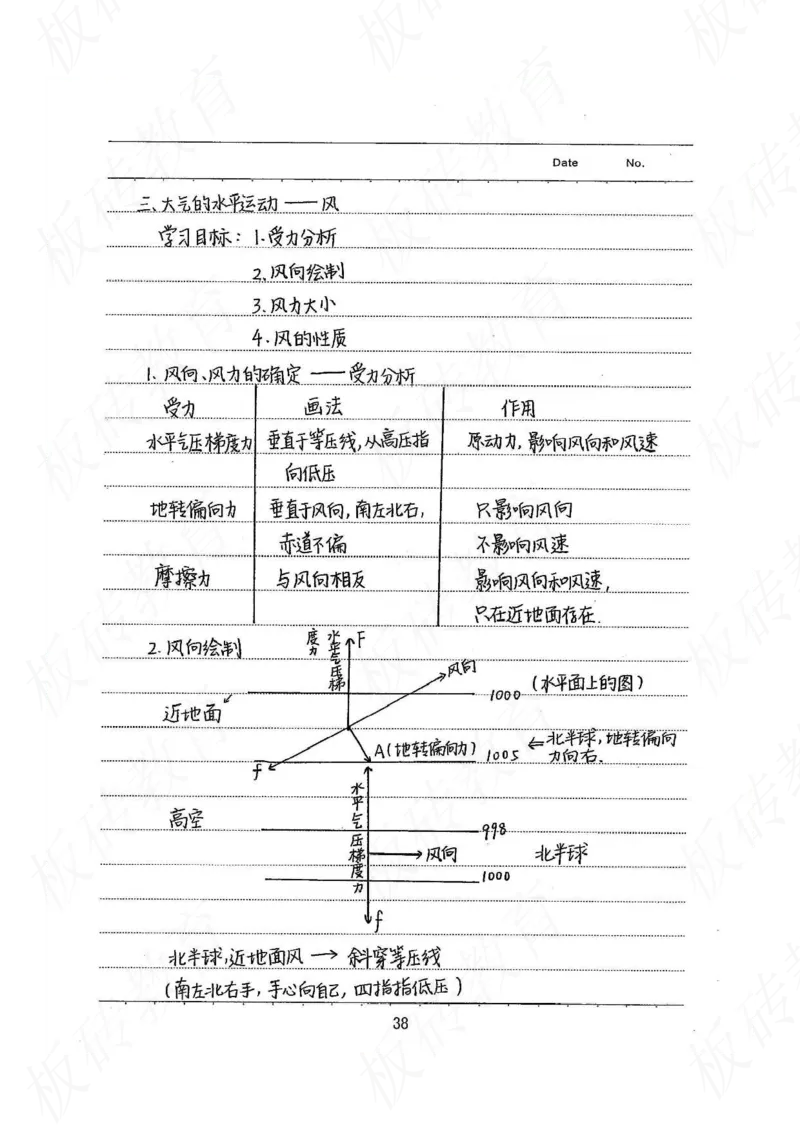 Date No.
三、大气的水平运动——风
学习目标：1.受力分析
2.风向绘制
3.风力大小
4.风的性质
1、风向、风力的确定——受力分析
受力 画法 作用
水平气压梯度力 垂直于等压线,从高压指 原动力,影响风向和风速
向低压
地转偏向力 垂直于风向,南左北右, 只影响风向
赤道不偏 不影响风速
摩擦力 与风向相反 影响风向和风速,
只在近地面存在.
2.风向绘制
水平气压梯度力 F
风向
1000 (水平面上的图)
近地面
A(地转偏向力) 1005 ⇐北半球,地转偏向
力向右.
f
水平气压梯度力
高空
998
风向 北半球
1000
f
北半球,近地面风 → 斜穿等压线
(南左北右手,手心向自己,四指指低压)
38
板砖教育
板砖教育
板砖教育
板砖教育
板砖教育
板砖教育
板砖教育
板砖教育
板砖教育